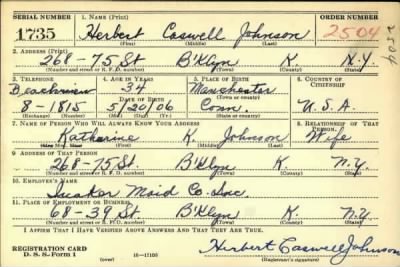 SERIAL NUMBER 1. NAME (Print) ORDER NUMBER
1735 Herbert Caswell Johnson 2504
(First) (Middle) (Last)
2504
2. ADDRESS (Print)
268-75 St B'klyn K. N.Y.
(Number and street or R. F. D. number) (Town) (County) (State)
3. TELEPHONE 4. AGE IN YEARS 5. PLACE OF BIRTH 6. COUNTRY OF CITIZENSHIP
Beachview 34 Manchester
DATE OF BIRTH (Town or county)
8-1815 5/20/06 Conn. U.S.A.
(Exchange) (Number) (Mo.) (Day) (Yr.) (State or country)
7. NAME OF PERSON WHO WILL ALWAYS KNOW YOUR ADDRESS 8. RELATIONSHIP OF THAT PERSON
Katharine K. Johnson Wife
(First) (Middle) (Last)
9. ADDRESS OF THAT PERSON
268-75 St. B'klyn K. N.Y.
(Number and street or R. F. D. number) (Town) (County) (State)
10. EMPLOYER'S NAME
Quaker Maid Co. Inc.
11. PLACE OF EMPLOYMENT OR BUSINESS
68-39 St. B'klyn K. N.Y.
(Number and street or R. F. D. number) (Town) (County) (State)
I AFFIRM THAT I HAVE VERIFIED ABOVE ANSWERS AND THAT THEY ARE TRUE.
REGISTRATION CARD
D. S. S. Form 1 16-17105 Herbert Caswell Johnson